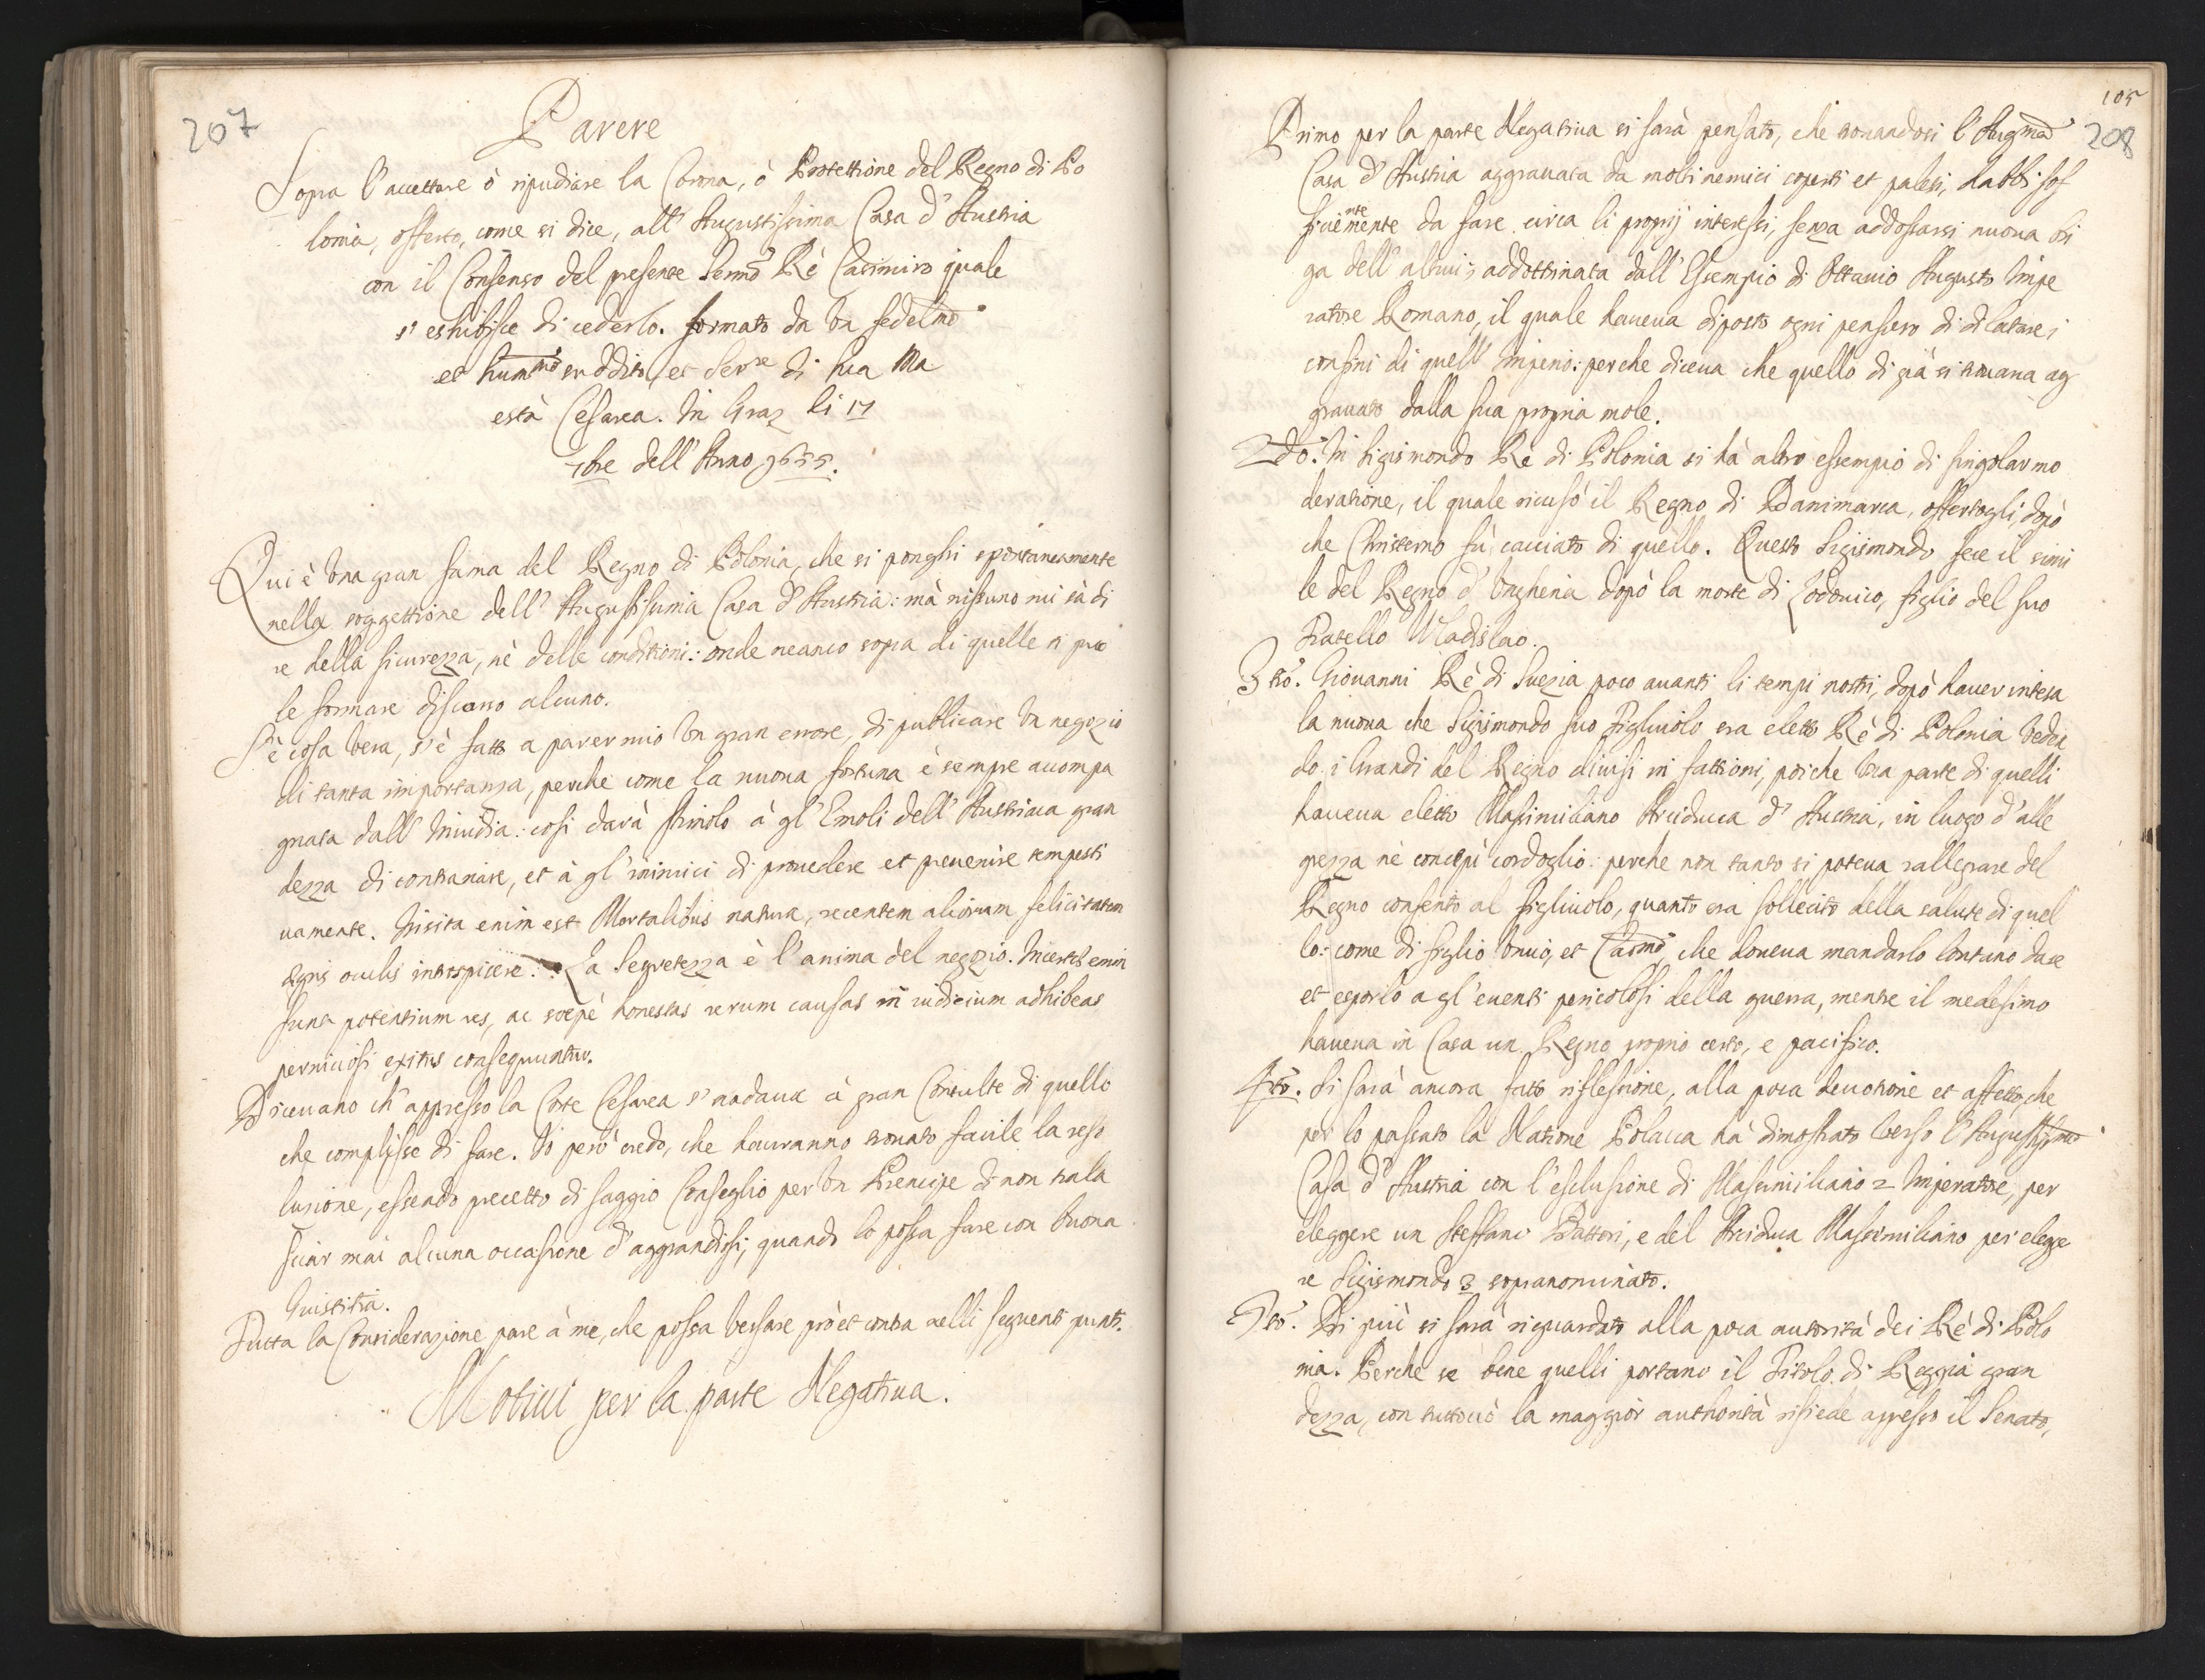 207
Parere
Sopra l'accettare ò ripudiare la Corona, ò Protettione del Regno di Po
lonia, offerto, come si dice, all' Augustissima Casa d'Austria
con il Consenso del presente Sermo Rè Casimiro quale
s' eshibisce di cederlo. formato da un fedelmo
et hummo suddito, et serre di sua Ma
està Cesarea. In Graz li 17
7bre dell' Anno 1655.
Qui è una gran fama del Regno di Polonia, che si ponghi spontaneamente
nella soggettione dell' Augustissima Casa d'Austria: mà nissuno mi sà di
re della sicurezza, nè delle conditioni: onde neanco sopra di quelle si puo
le formare discorso alcuno.
S'è cosa vera, s'è fatto a parer mio un gran errore, di publicare un negozio
di tanta importanza, perche come la nuova fortuna è sempre accompa
gnata dall' Invidia: cosi darà stimolo à gl'Emoli dell' Austriaca gran
dezza di contrariare, et à gl'inimici di provedere et prevenire tempesti
vamente. Insita enim est Mortalibus natura, recentem aliorum felicitatem
ægris oculis introspicere. La Segretezza è l'anima del negozio. Incertæ enim
sunt potentium res, ac soepè honestas rerum causas ni iudicium adhibeas
perniciosi exitus consequuntur.
Dicevano ch'appresso la Corte Cesarea s'nadava à gran Consulte di quello
che complisse di fare. Io però credo, che haveranno trovato facile la reso
lusione, essendo precetto di saggio Conseglio per un Prencipe di non trala
sciar mai alcuna occasione d'aggrandirsi, quando lo possa fare con buona
Guistitia.
Tutta la Considerazione pare à me, che possa versare prò et contra nelli seguenti punti.
Motivi per la parte Negativa.
105
208
Primo per la parte Negativa si sarà pensato, che trovandosi l'Augma
Casa d'Austria aggravata da molti nemici coperti et palesi, habbi sof
ficientemente da fare circa li proprij interessi, senza addossarsi nuova bri
ga dell'altrui; addottrinata dall' Essempio di Ottavio Augusto Impe
ratore Romano, il quale haveva diposto ogni pensiero di dilatare i
confini di quell' Imperio: perche diceva che quello di già si trovava ag
gravato dalla sua propria mole.
2do. In Sigismondo Rè di Polonia si hà altro essempio di singolar mo
deratione, il quale ricusò il Regno di Danimarca, offertogli, dopò
che Christerno fù cacciato di quello. Questo Sigismondo fece il simi
le del Regno d'Ungheria dopò la morte di Lodovico, figlio del suo
Fratello Uladislao.
3tio. Giovanni Rè di Svezia poco avanti li tempi nostri, dopò haver intesa
la nuova che Sigismondo suo figliuolo era eletto Rè di Polonia veden
do i Grandi del Regno divisi in fattioni, poiche una parte di quelli
haveva eletto Massimiliano Arciduca d'Austria, in luogo d'alle
grezza nè concepì cordoglio: perche non tanto si poteva rallegrare del
Regno conferito al figliuolo, quanto era sollecito della salute di quel
lo: come di figlio unico, et Carmo, che doveva mandarlo lontano da se
et esporlo a gl'eventi pericolosi della guerra, mentre il medesimo
haveva in Casa un Regno proprio certo, e pacifico.
4to. Si sarà ancora fatto riflessione, alla poca devotione et affetto, che
per lo passato la Natione Polacca hà dimostrato verso l'Augustissma
Casa d'Austria con l'esclusione di Massimiliano 2 Imperatore, per
eleggere un Steffano Battori, e del Arciduca Massimiliano per elegge
re Sigismondo 3 sopranominato.
5to. Di più si sarà riguardato alla poca autorità dei Rè di Polo
nia. Perche se bene quelli portano il Titolo di Reggia gran
dezza, con tuttociò la maggior authorità risiede appresso il Senato,